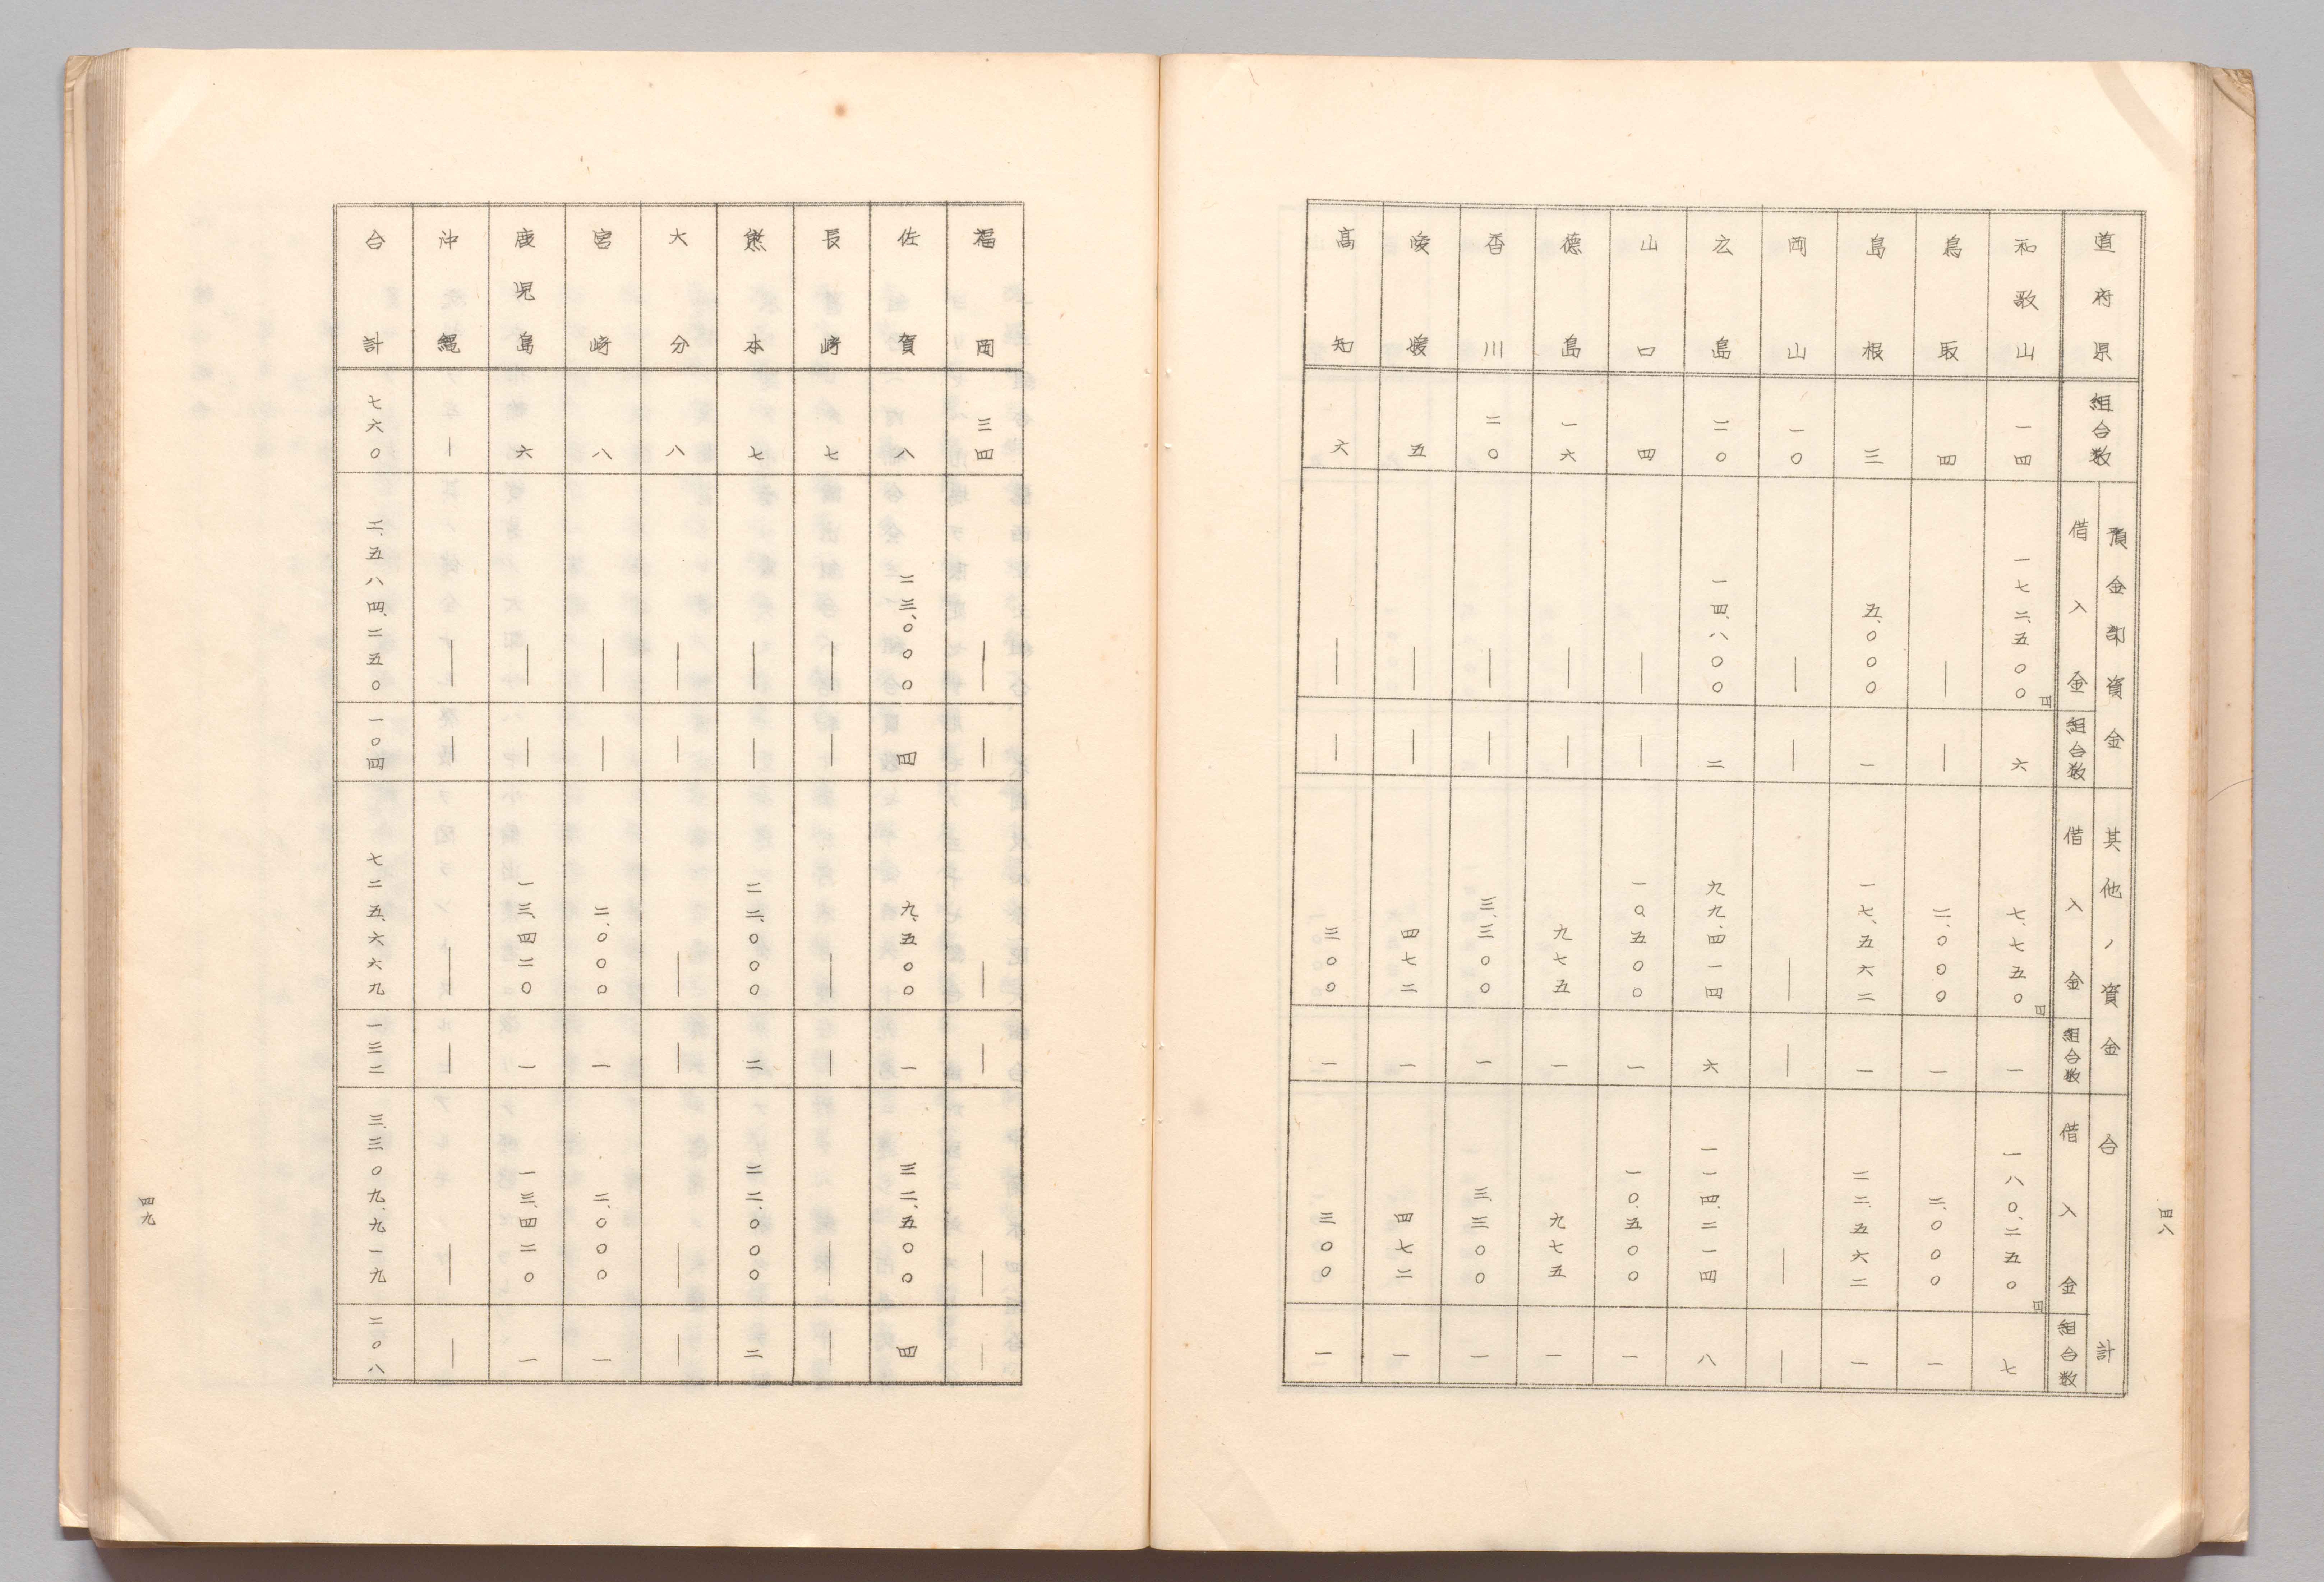 四八
道府県 組合数 預金部資金 其他ノ資金 合計
借入金 組合数 借入金 組合数 借入金 組合数
和歌山 一四 一七二、五〇〇円 六 七、七五〇円 一 一八〇、二五〇円 七
鳥取 四 ― ― 二、〇〇〇 一 二、〇〇〇 一
島根 三 五、〇〇〇 一 一七、五六二 一 二二、五六二 一
岡山 一〇 ― ― ― ― ― ―
広島 二〇 一四、八〇〇 二 九九、四一四 六 一一四、二一四 八
山口 四 ― ― 一〇、五〇〇 一 一〇、五〇〇 一
徳島 一六 ― ― 九七五 一 九七五 一
香川 二〇 ― ― 三、三〇〇 一 三、三〇〇 一
愛媛 五 ― ― 四七二 一 四七二 一
高知 六 ― ― 三〇〇 一 三〇〇 一
福岡 三四 ― ― ― ― ― ―
佐賀 八 二三、〇〇〇 四 九、五〇〇 一 三二、五〇〇 四
長崎 七 ― ― ― ― ― ―
熊本 七 ― ― 二二、〇〇〇 二 二二、〇〇〇 二
大分 八 ― ― ― ― ― ―
宮崎 八 ― ― 二、〇〇〇 一 二、〇〇〇 一
鹿児島 六 ― ― 一三、四二〇 一 一三、四二〇 一
沖縄 ― ― ― ― ― ― ―
合計 七六〇 二、五八四、二五〇 一〇四 七二五、六六九 一三二 三、三〇九、九一九 二〇八
四九